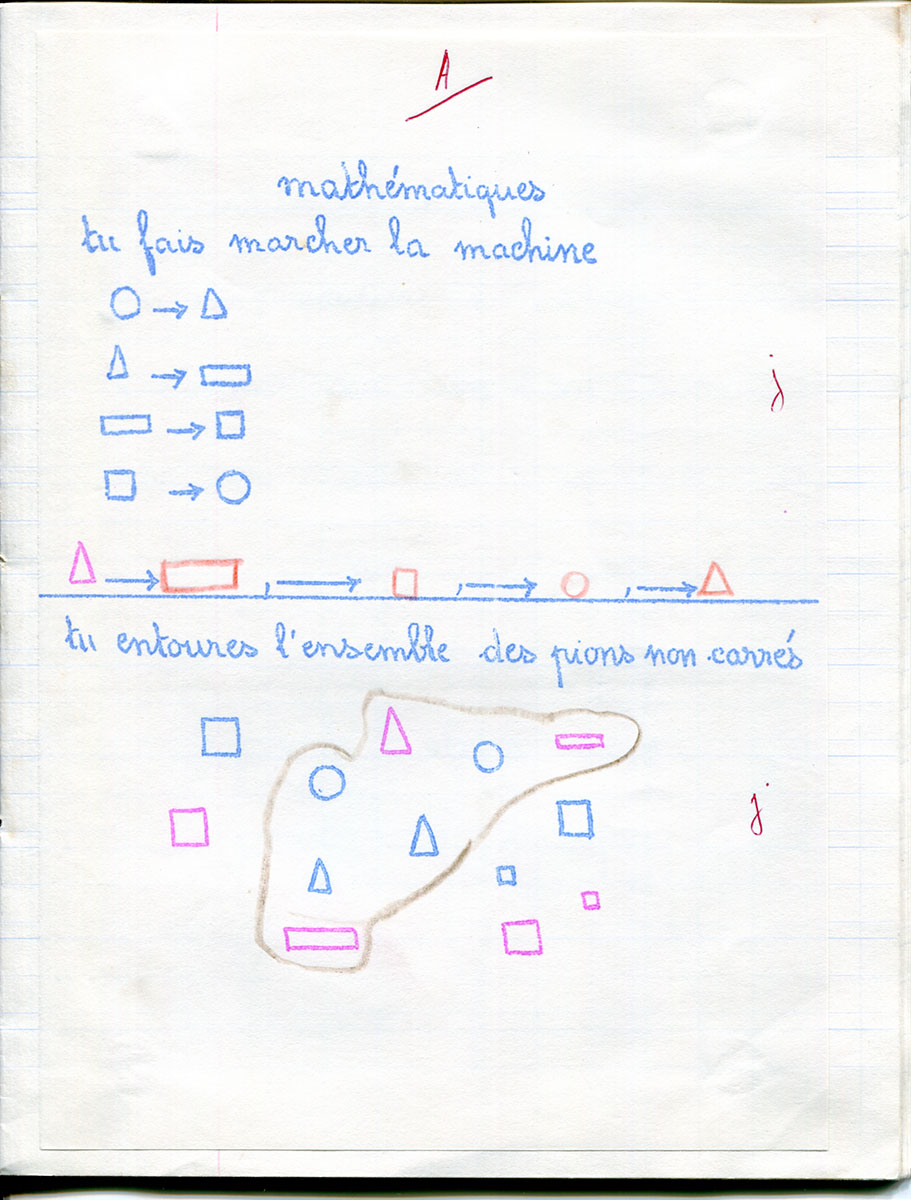 A
mathématiques
tu fais marcher la machine
j
tu entoures l'ensemble des pions non carrés
j